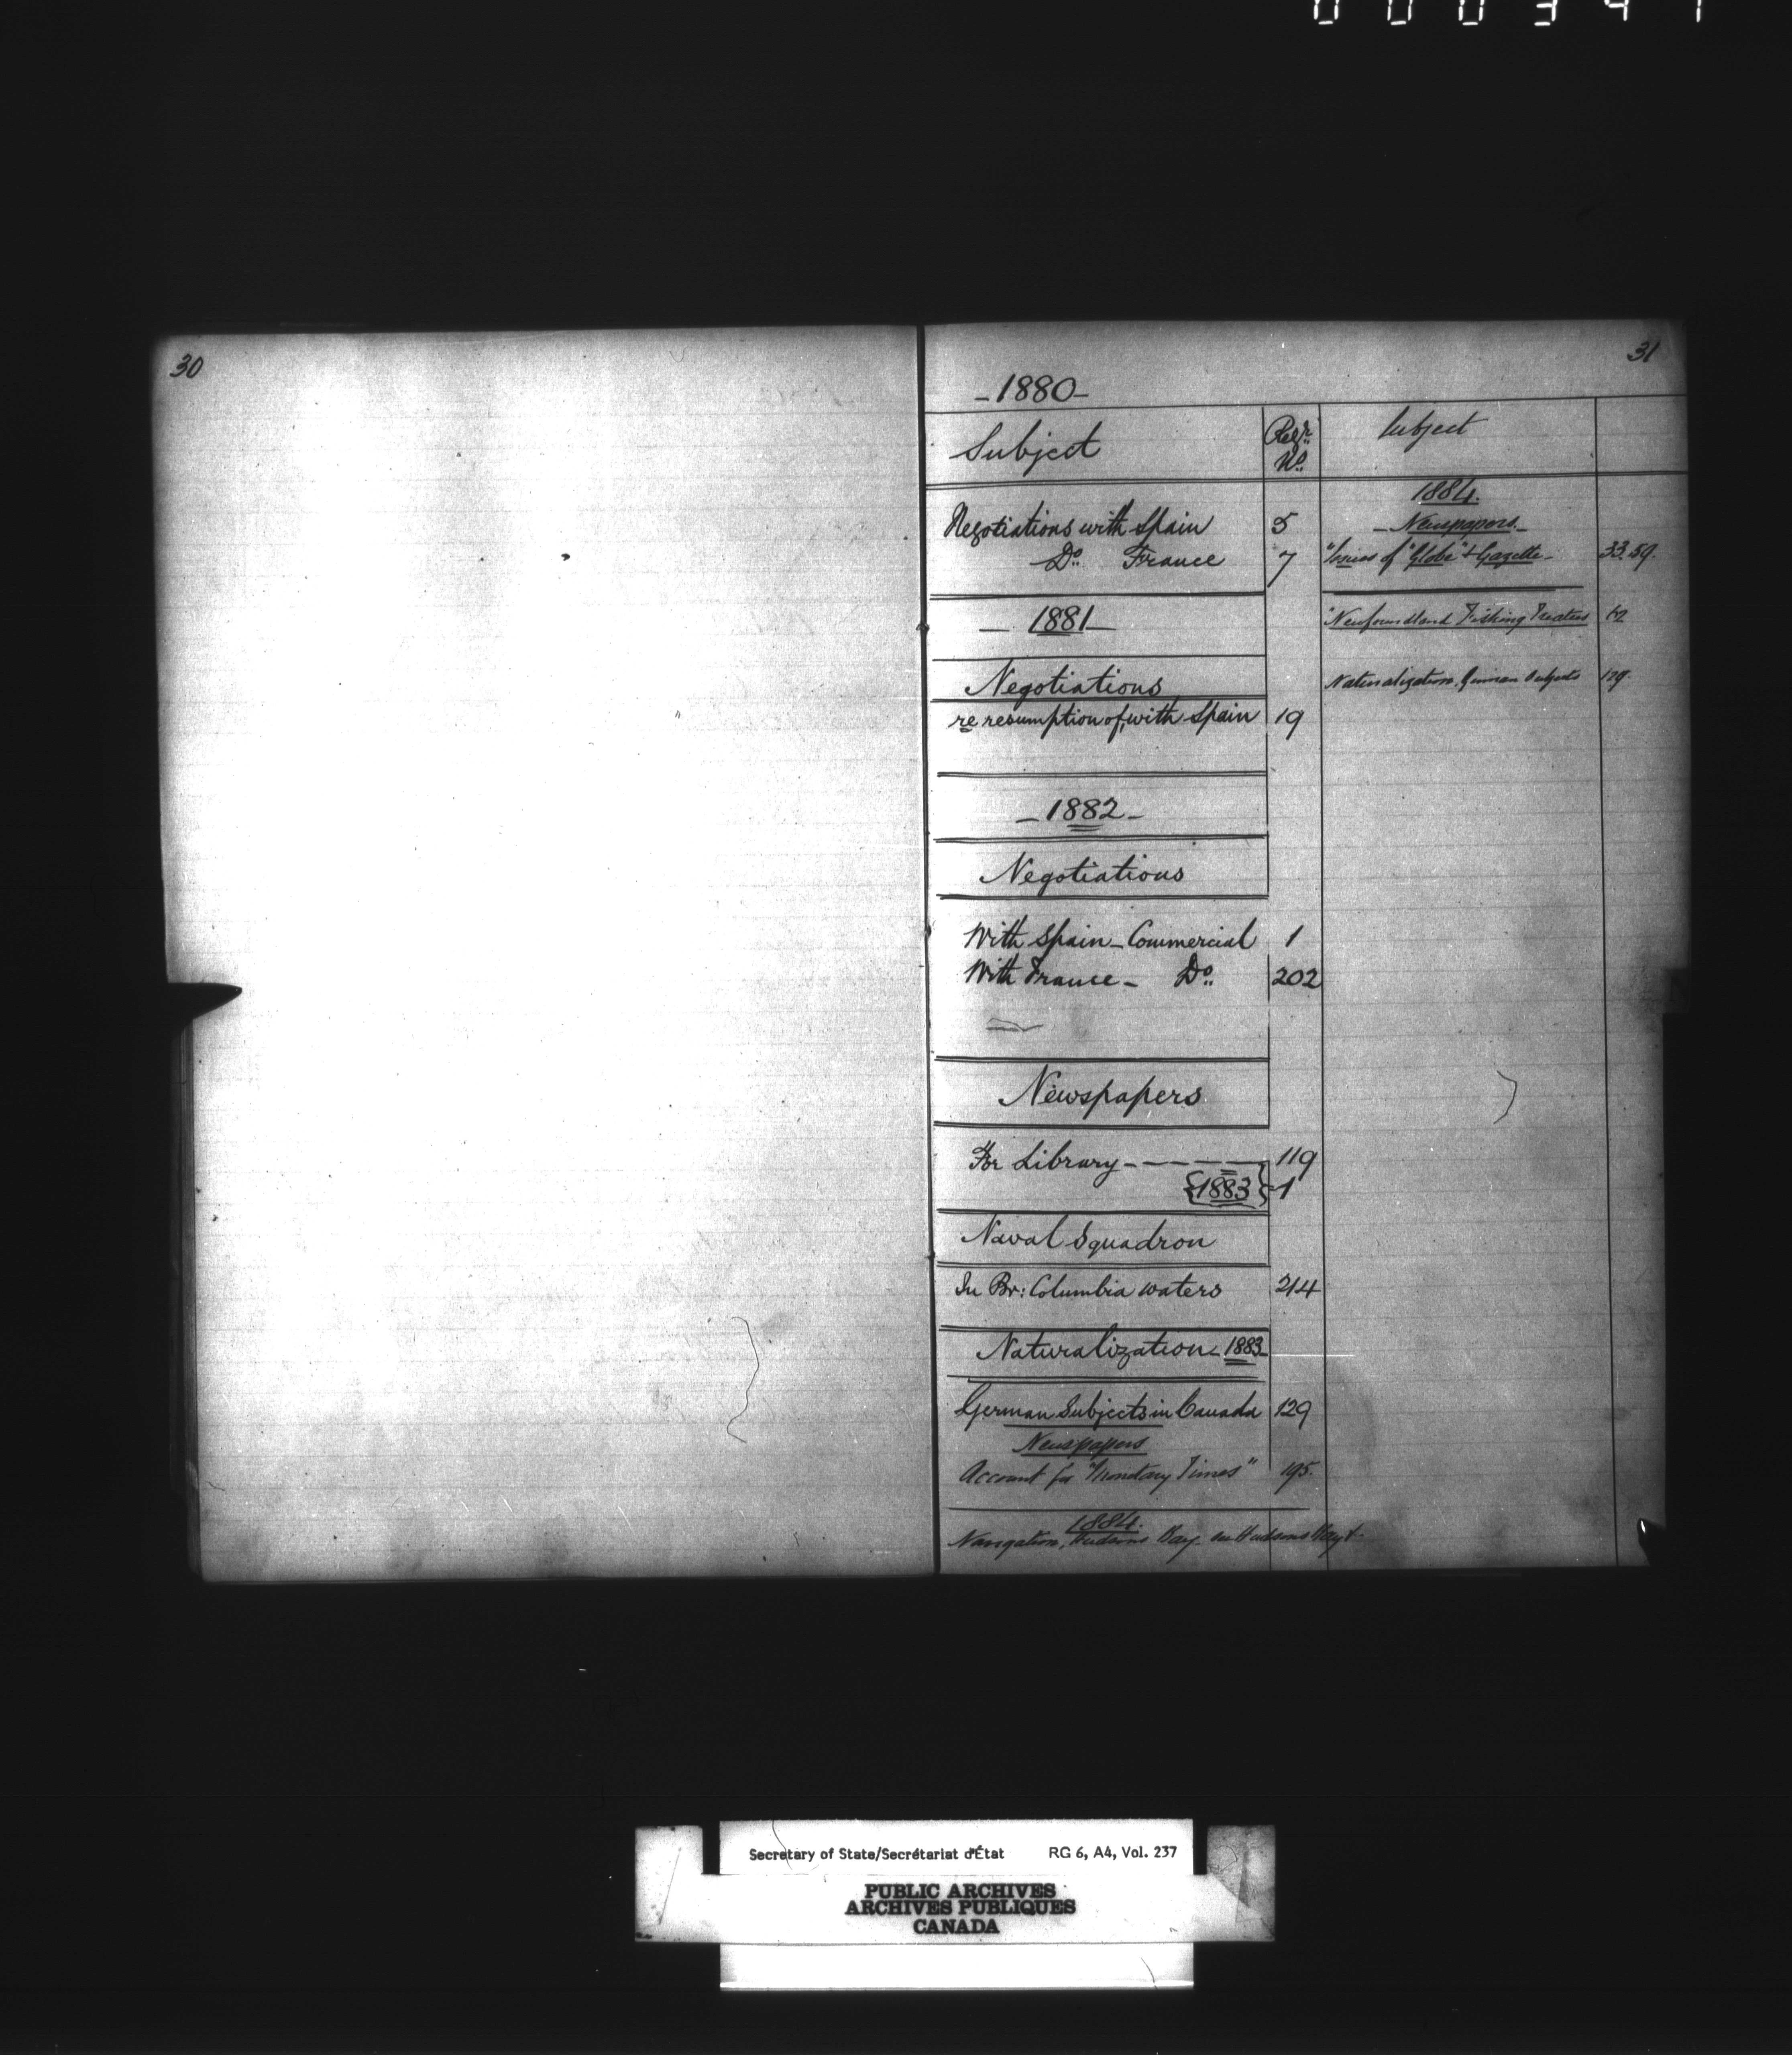 30
31
– 1880 –
Subject
Regr. No.
Negotiations with Spain 5
Do. France 7
— 1881 —
Negotiations
re resumption of, with Spain 19
– 1882 –
Negotiations
With Spain – Commercial 1
With France – Do. 202
Newspapers
For Library – – – – – 119
{1883} – 1
Naval Squadron
In Br: Columbia waters 214
Naturalization – 1883
German Subjects in Canada 129
Newspapers
Account for "Monetary Times" 195.
1884.
Navigation, Hudsons Bay
Subject
1884.
– Newspapers. –
of "Globe" & Gazette – 33.59.
Newfoundland Fishing Treaties
Naturalization, German Subjects 129.
Secretary of State/Secrétariat d'État RG 6, A4, Vol. 237
PUBLIC ARCHIVES
ARCHIVES PUBLIQUES
CANADA